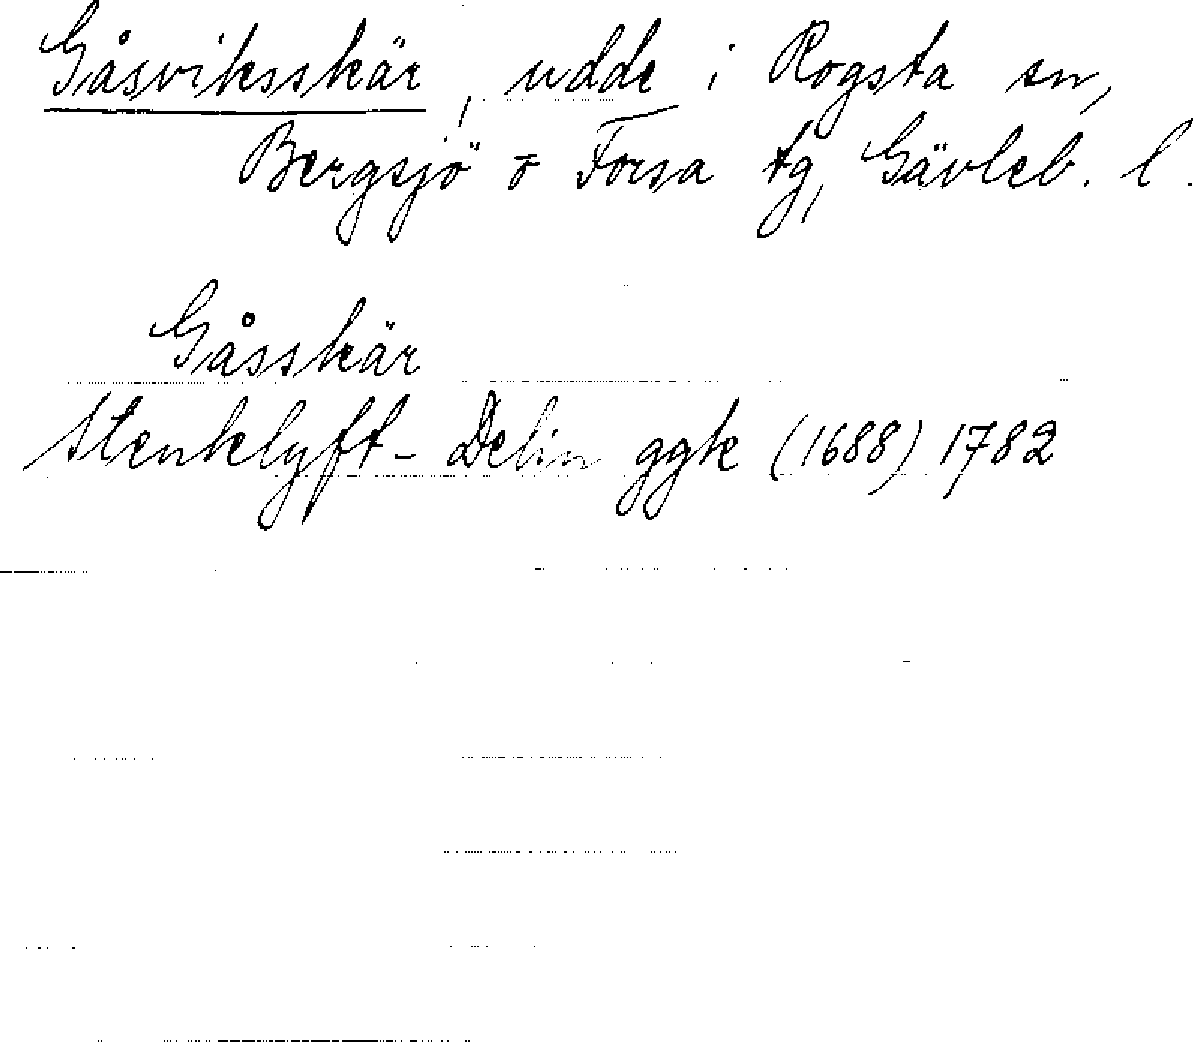 Gåsviksskär, udde i Rogsta sn,
Bergsjö o Forsa tg, Gävleb. l.
Gåsskär
Stenklyft- Delin ggk (1688) 1782